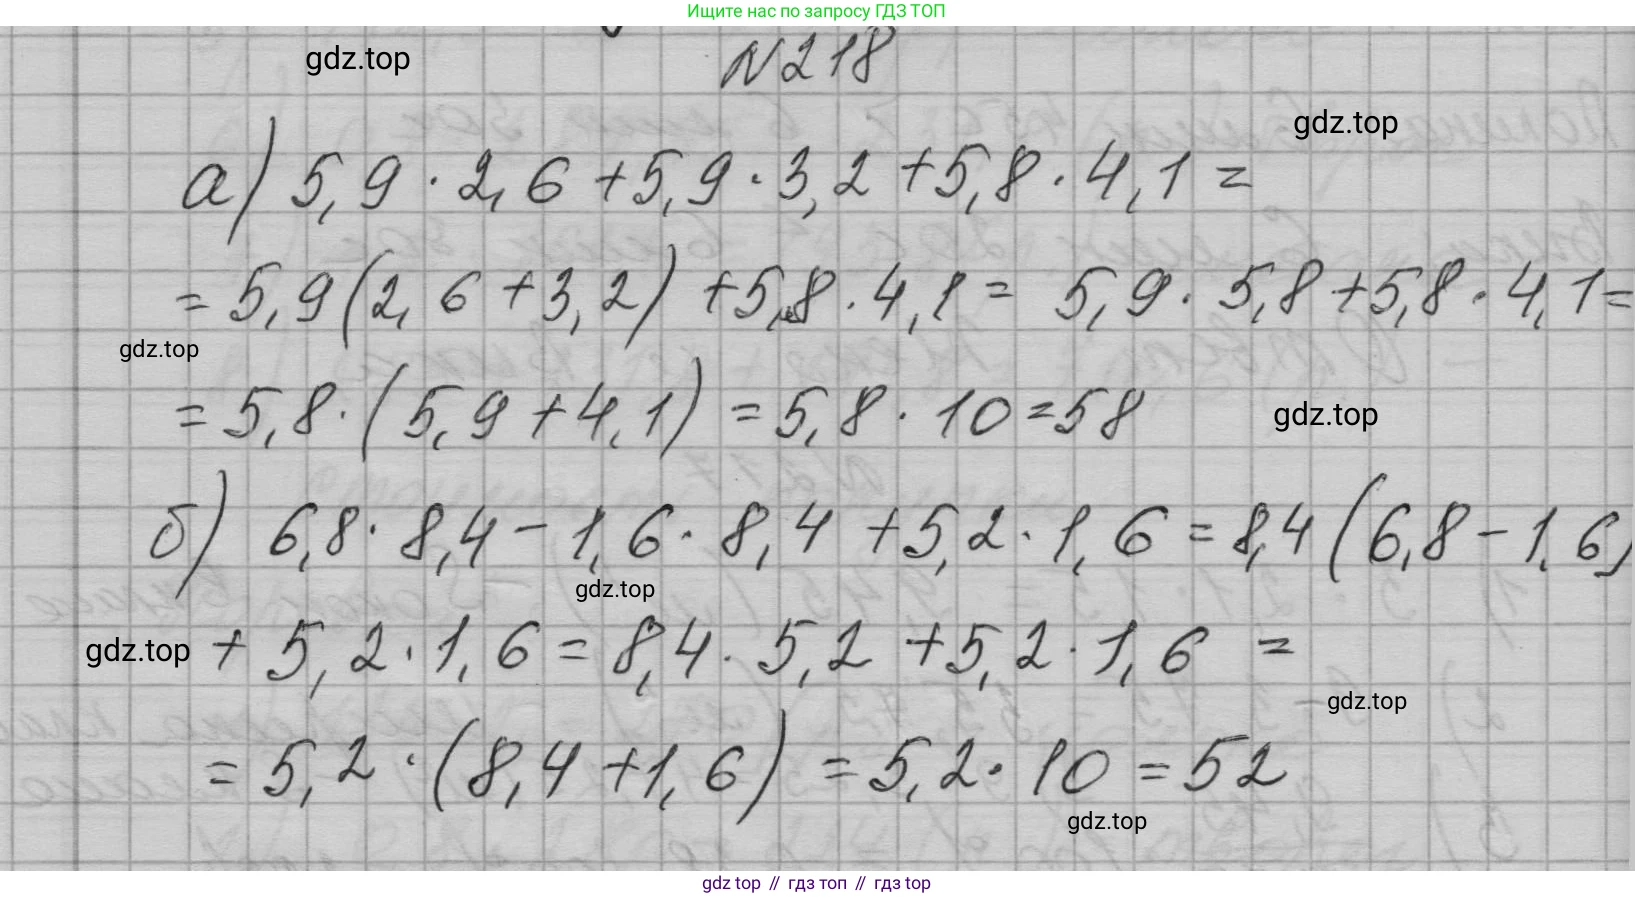 Ищите нас по запросу ГДЗ ТОП
gdz.top
N218
gdz.top
а) 5,9 · 2,6 + 5,9 · 3,2 + 5,8 · 4,1 =
= 5,9 (2,6 + 3,2) + 5,8 · 4,1 = 5,9 · 5,8 + 5,8 · 4,1 =
gdz.top
= 5,8 · (5,9 + 4,1) = 5,8 · 10 = 58
gdz.top
б) 6,8 · 8,4 - 1,6 · 8,4 + 5,2 · 1,6 = 8,4 (6,8 - 1,6)
gdz.top
gdz.top
+ 5,2 · 1,6 = 8,4 · 5,2 + 5,2 · 1,6 =
gdz.top
= 5,2 · (8,4 + 1,6) = 5,2 · 10 = 52
gdz.top
gdz top // гдз топ // гдз top